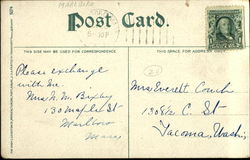 Post Card.
THIS SIDE MAY BE USED FOR CORRESPONDENCE
THIS SPACE FOR ADDRESS ONLY.
Please exchange
with me.
Mrs. N. M. Bixby
130 Maple St
Marlboro
Mass
Mrs Everett Couch
1308½ C. St
Tacoma, Wash.